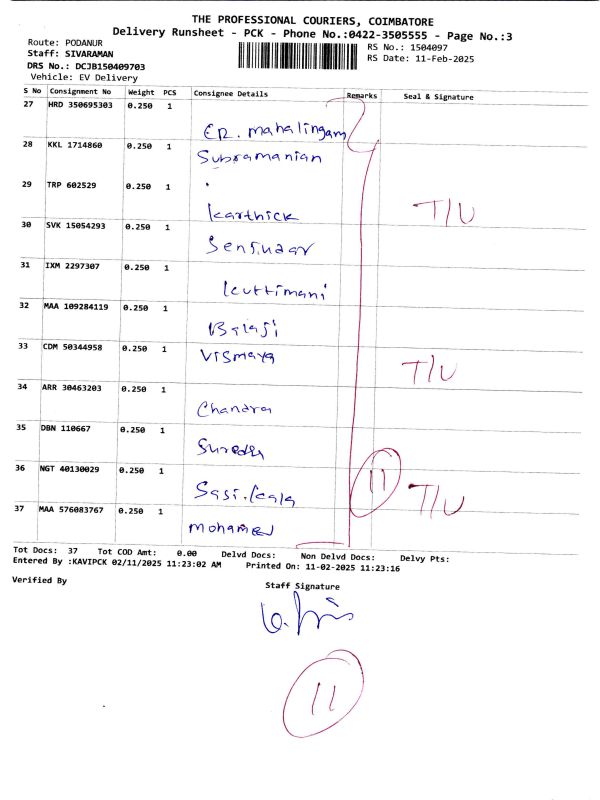 THE PROFESSIONAL COURIERS, COIMBATORE
Delivery Runsheet - PCK - Phone No.:0422-3505555 - Page No.:3
Route: PODANUR
RS No.: 1504097
Staff: SIVARAMAN
RS Date: 11-Feb-2025
DRS No.: DCJB150409703
Vehicle: EV Delivery
S No Consignment No Weight PCS Consignee Details Remarks Seal & Signature
27 HRD 350695303 0.250 1 ER. mahalingam
28 KKL 1714860 0.250 1 Subramanian
29 TRP 602529 0.250 1 Karthick T/U
30 SVK 15054293 0.250 1
31 IXM 2297307 0.250 1 Kuttimani
32 MAA 109284119 0.250 1 Balaji
33 CDM 50344958 0.250 1 Vismaya T/U
34 ARR 30463203 0.250 1 Chandra
35 DBN 110667 0.250 1 Suresh
36 NGT 40130029 0.250 1 Sasi.kala 11 T/U
37 MAA 576083767 0.250 1 mohamed
Tot Docs: 37 Tot COD Amt: 0.00 Delvd Docs: Non Delvd Docs: Delvy Pts:
Entered By :KAVIPCK 02/11/2025 11:23:02 AM Printed On: 11-02-2025 11:23:16
Verified By
Staff Signature
11